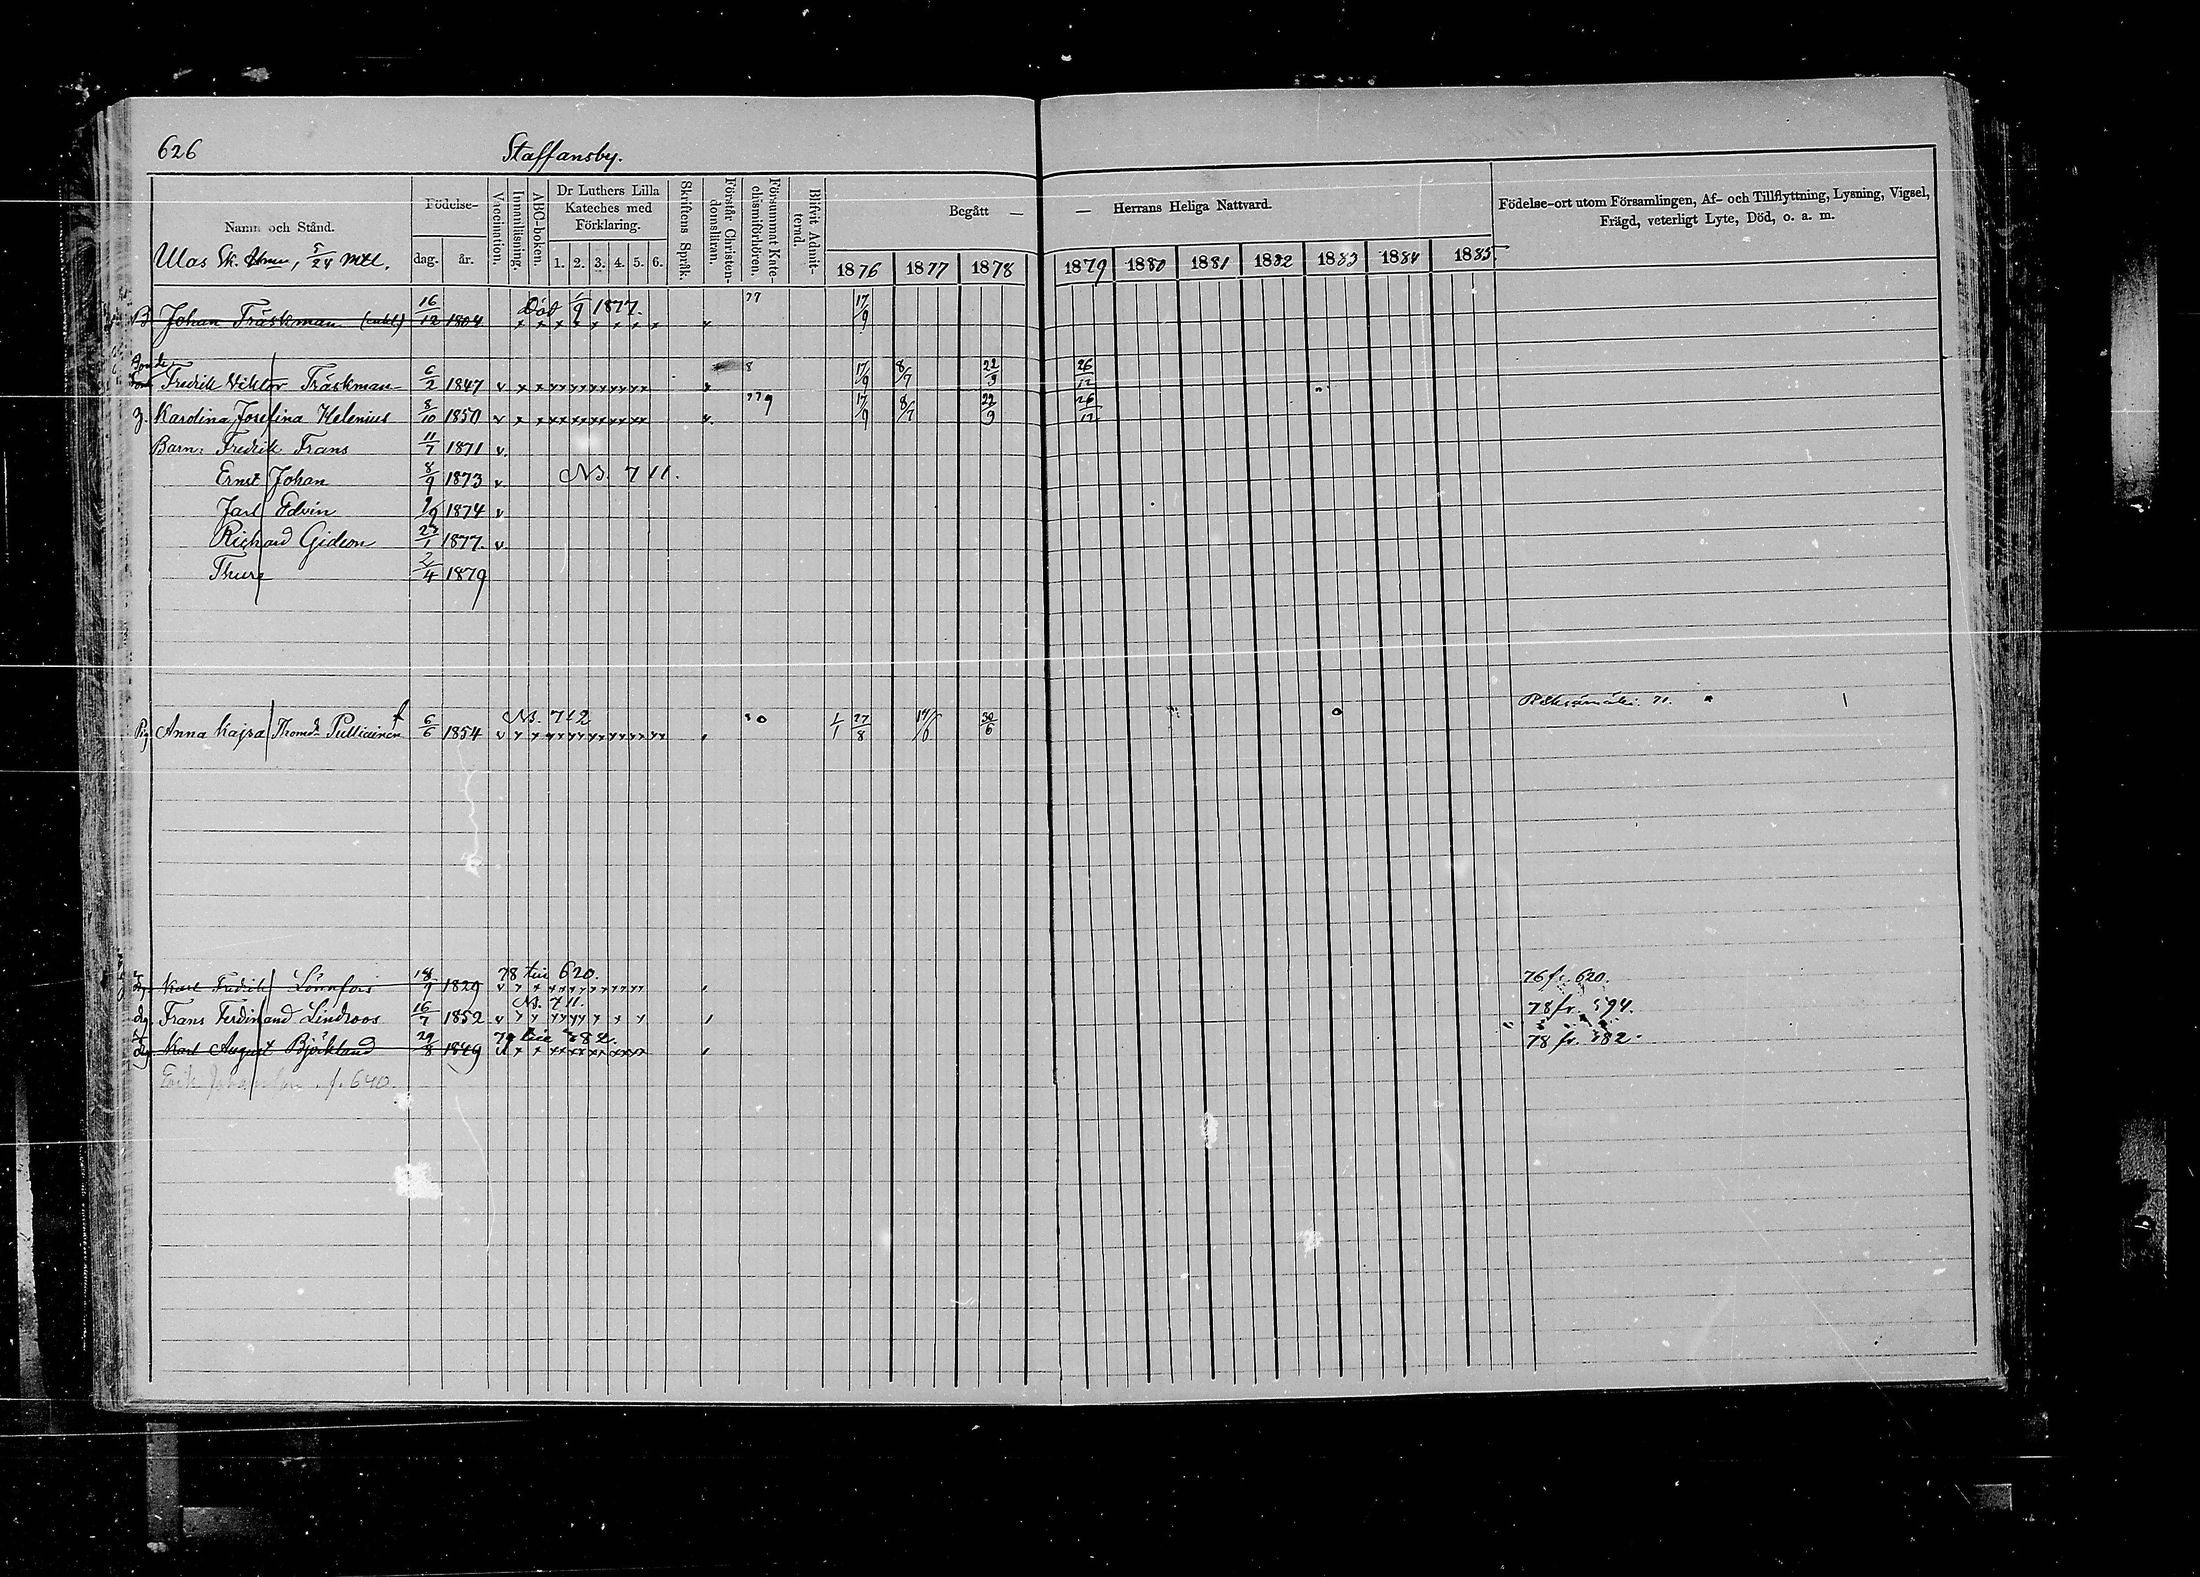 626 Staffansby.
Namn och Stånd. Födelse- dag. år. Vaccination. Innanläsning. ABC-boken. Dr Luthers Lilla Kateches med Förklaring. 1. 2. 3. 4. 5. 6. Skriftens Språk. Förstår Christendomsläran. Försummat Katechismiförhören. Blifvit Admitterad. Begått — — Herrans Heliga Nattvard. Födelse-ort utom Församlingen, Af- och Tillflyttning, Lysning, Vigsel, Frägd, veterligt Lyte, Död, o. a. m.
Ulas Sk. 5/24 mtl. 1876 1877 1878 1879 1880 1881 1882 1883 1884 1885
B. Johan Träskman 16/12 1804 Död 1/9 1877. 77 17/9
Bonde
Fredrik Viktor Träskman 6/2 1847 v 8 17/9 8/7 22/9 26/12
h. Karolina Josefina Helenius 8/10 1850 v 779 17/9 8/7 22/9 26/12
Barn: Fredrik Frans 11/7 1871 v.
Ernst Johan 8/9 1873 v N.B. 711.
Jarl Edvin 9/9 1874 v
Richard Gideon 27/1 1877. v
Thure 2/4 1879
Pig. Anna Kajsa Thomd. Pulliainen 6/6 1854 N.B. 712 1/1 27/8 30/6 71.
Karl Fredrik Lönnfors 18/9 1829 78 till 620. 76 fr. 620.
Drg. Frans Ferdinand Lindroos 16/7 1852 N.B. 711. 78 fr. 594.
Karl August Björklund 29/8 1849 79 till 382. 78 fr. 382.
Erik Johansson f. 640.